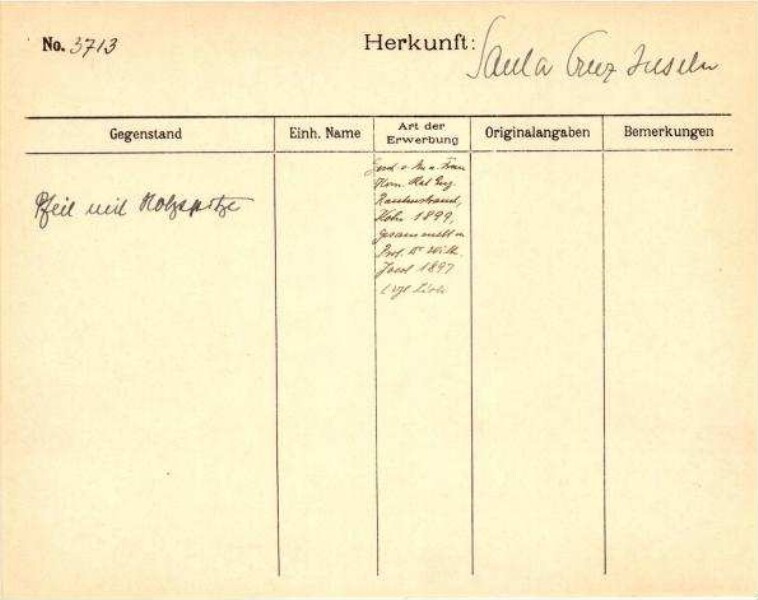 No. 3713
Herkunft: Santa Cruz Inseln
Gegenstand
Einh. Name
Art der Erwerbung
Originalangaben
Bemerkungen
Pfeil mit Holzspitze
Gesch. v. Hrn. u. Frau
Kom. Rat Eug.
Rautenstrauch,
Köln 1899,
gesammelt v.
Prof. Dr Wilh.
Joest 1897